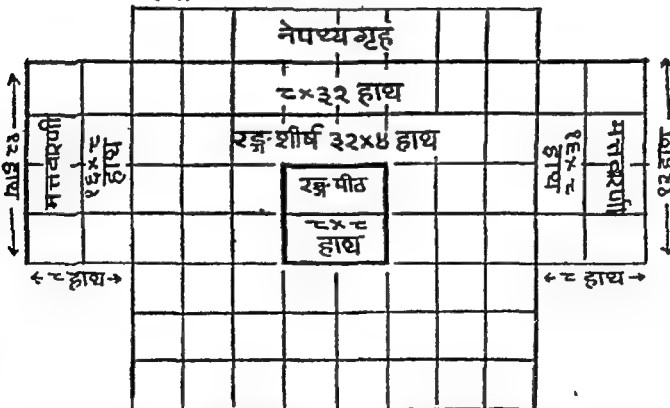 नेपथ्य गृह
८×३२ हाथ
रङ्ग-शीर्ष ३२×४ हाथ
रङ्ग-पीठ
८×८
हाथ
हाथ
मत्तवरणी
१६×८
हाथ
८ हाथ
१६×८
हाथ
मत्तवरणी
हाथ
८ हाथ